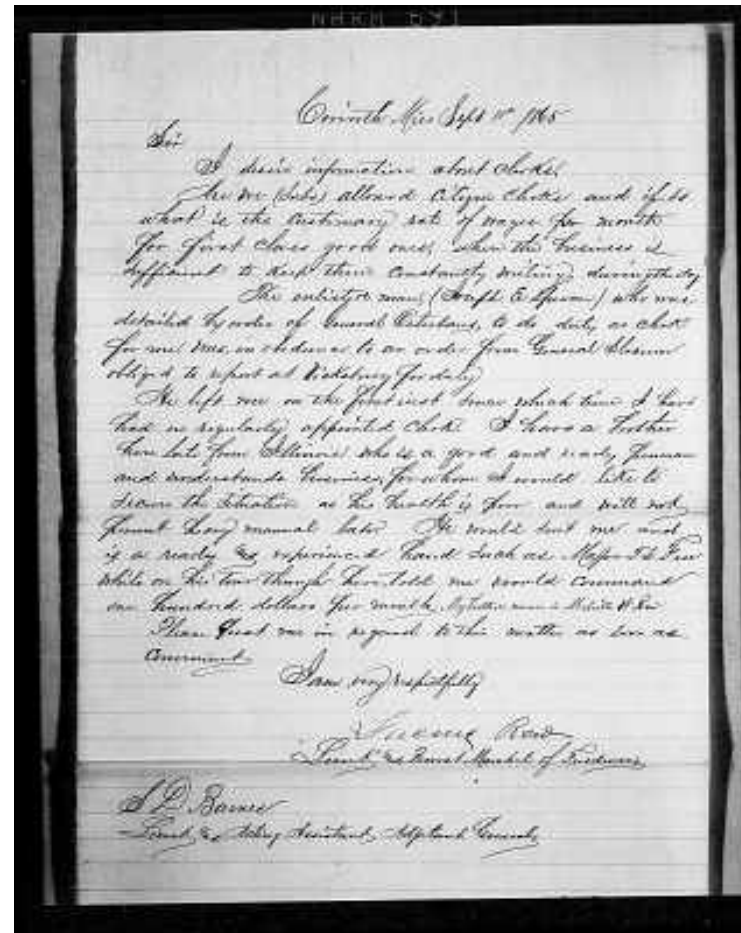 Corinth Miss Sept 11th 1865
Sir
I desire information about clerks.
Are we (Subs) allowed Citizen Clerks and if so
what is the customary rate of wages per month
for first class good ones, when the business is
sufficient to keep them constantly writing during the day
The enlisted man, (Joseph E ) who was
detailed by order of General Osterhaus, to do duty as clerk
for me was, in obedience to an order from General Slocum
obliged to report at Vicksburg for duty
He left me on the first inst since which time I have
had no regularly appointed clerk. I have a brother
here late from Illinois who is a good and ready penman
and understands business, for whom I would like to
secure the situation as his health is poor and will not
permit heavy manual labor. He would suit me and
is a ready & experienced hand such as Major
while on his tour through here told me would command
one hundred dollars per month. My brothers name is
Please post me in regard to this matter as soon as
convenient.
I am very respectfully
Lieut & Provost Marshal of Freedmen
S D Barnes
Lieut & Acting Assistant Adjutant General